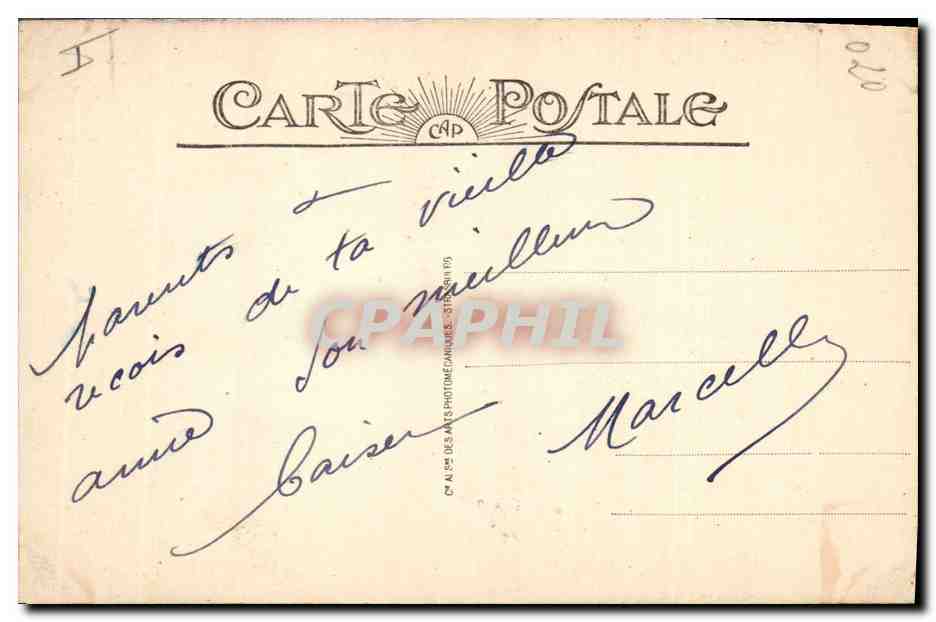 I
020
CARTE POSTALE
CAP
parents et
recois de ta vieille
amie son meilleur
baiser
Marcelle
Cie ALSnne DES ARTS PHOTOMÉCANIQUES - STRASBOURG
CPAPHIL